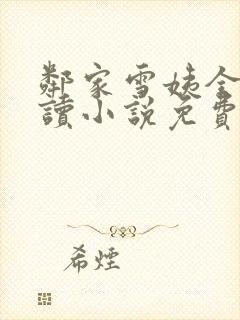 鄰家雪姨全
讀小說免費
希煙